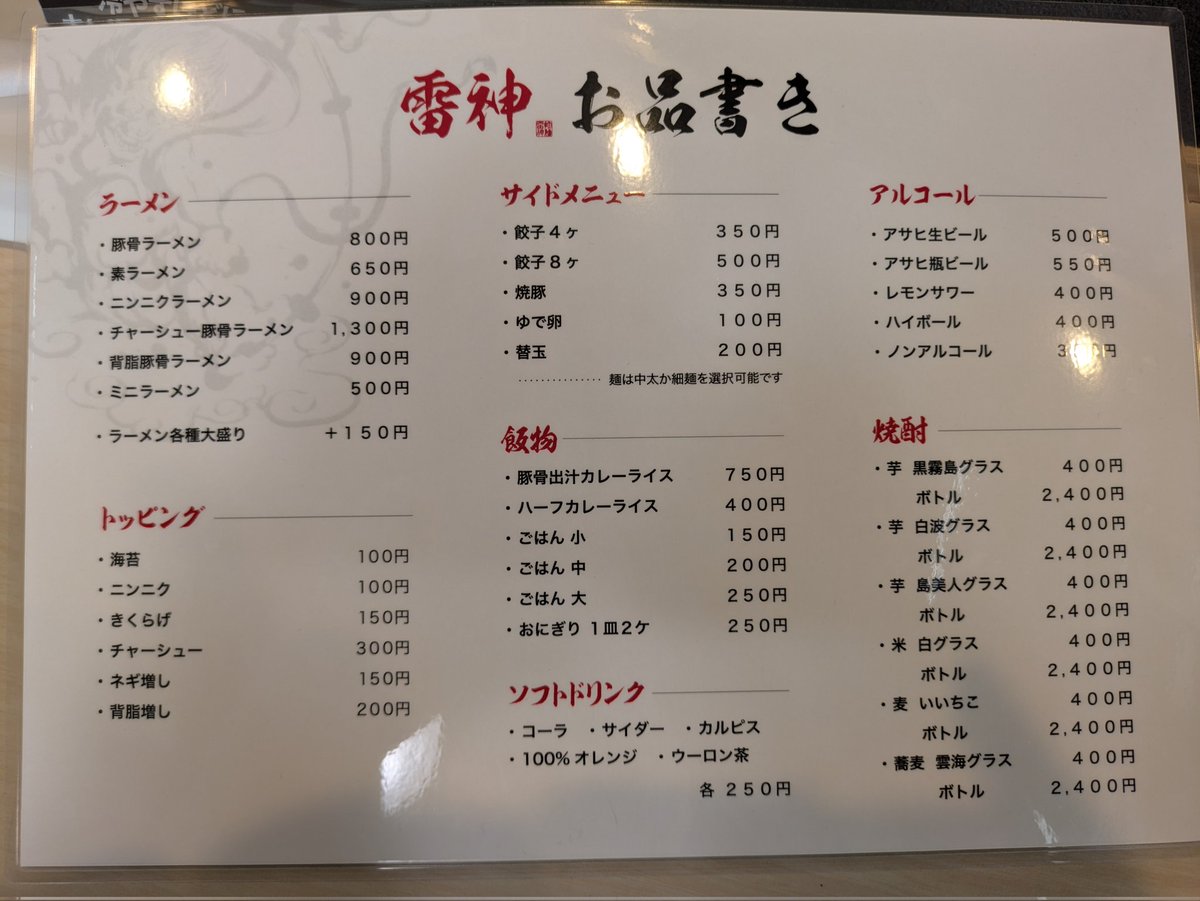 雷神 お品書き
ラーメン
・豚骨ラーメン 800円
・素ラーメン 650円
・ニンニクラーメン 900円
・チャーシュー豚骨ラーメン 1,300円
・背脂豚骨ラーメン 900円
・ミニラーメン 500円
・ラーメン各種大盛り +150円
トッピング
・海苔 100円
・ニンニク 100円
・きくらげ 150円
・チャーシュー 300円
・ネギ増し 150円
・背脂増し 200円
サイドメニュー
・餃子4ヶ 350円
・餃子8ヶ 500円
・焼豚 350円
・ゆで卵 100円
・替玉 200円
……………麺は中太か細麺を選択可能です
飯物
・豚骨出汁カレーライス 750円
・ハーフカレーライス 400円
・ごはん 小 150円
・ごはん 中 200円
・ごはん 大 250円
・おにぎり 1皿2ケ 250円
ソフトドリンク
・コーラ ・サイダー ・カルピス
・100%オレンジ ・ウーロン茶
各 250円
アルコール
・アサヒ生ビール 500円
・アサヒ瓶ビール 550円
・レモンサワー 400円
・ハイボール 400円
・ノンアルコール
焼酎
・芋 黒霧島グラス 400円
ボトル 2,400円
・芋 白波グラス 400円
ボトル 2,400円
・芋 島美人グラス 400円
ボトル 2,400円
・米 白グラス 400円
ボトル 2,400円
・麦 いいちこ 400円
ボトル 2,400円
・蕎麦 雲海グラス 400円
ボトル 2,400円